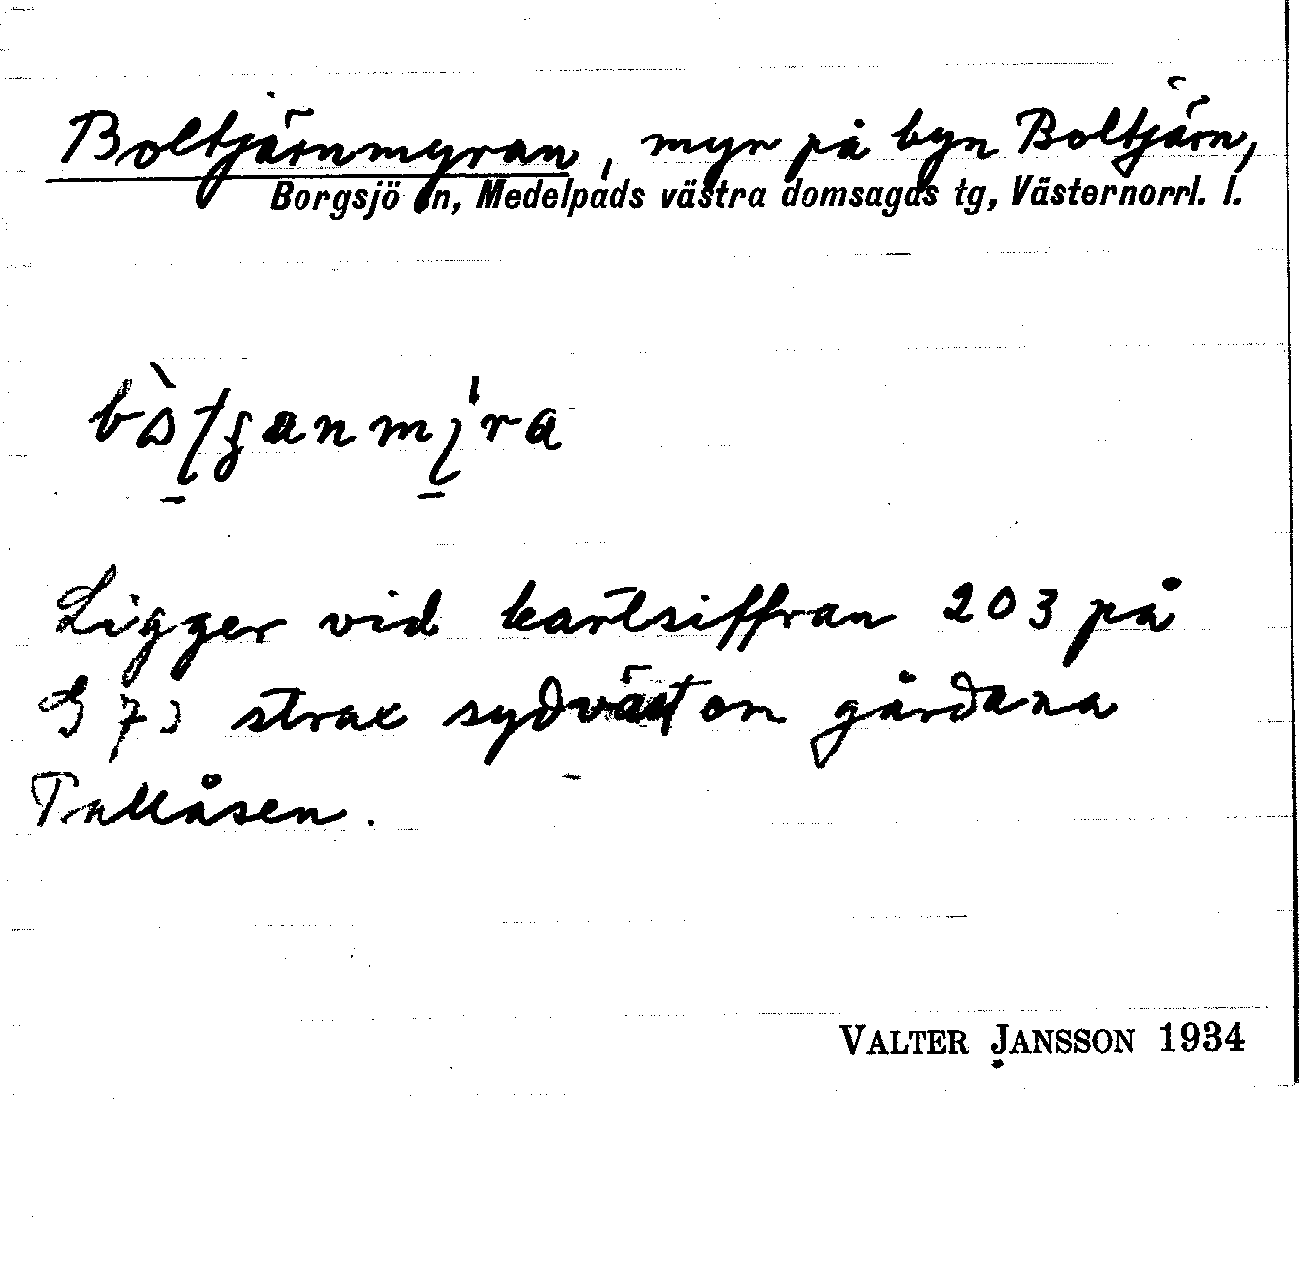 Boltjärnmyran, myr på byn Boltjärn,
Borgsjö sn, Medelpads västra domsagas tg, Västernorrl. l.
Ligger vid kartsiffran 203 på
strax sydväst om gårdarna
Tallåsen.
VALTER JANSSON 1934